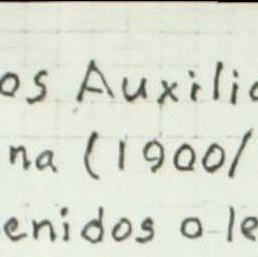 os Auxilia
na (1900/
enidos o le